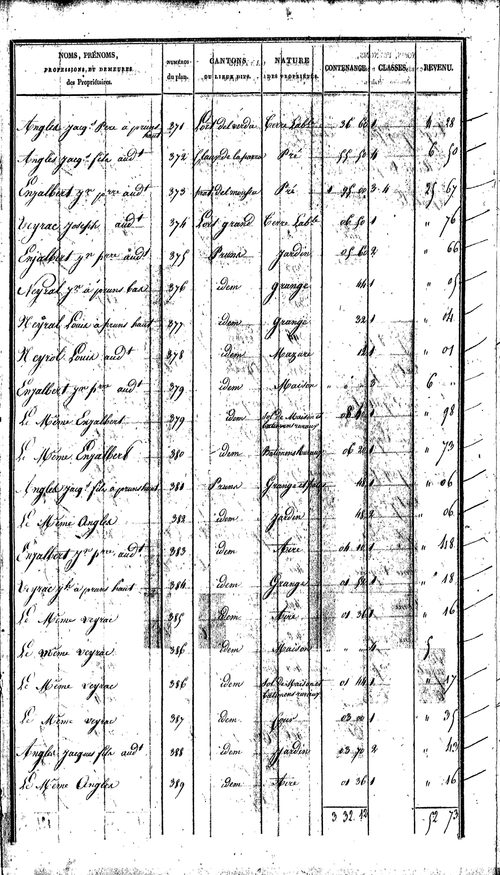 NOMS, PRÉNOMS, PROFESSIONS, ET DEMEURES des Propriétaires. NUMÉROS du plan. CANTONS OU LIEUX DITS. NATURE DES PROPRIÉTÉS. CONTENANCE. CLASSES. REVENU.
Anglès Jacq.s Père à pruns haut 371 Terre Lab.le 36 60 1 4 28
Anglès Jacq.s fils aud.t 372 Pré 55 50 4 6 50
Enjalbert aud.t 373 Pré 1 95 00 3-4 25 67
Veyrac Joseph aud.t 374 Lort grand Terre Lab.le 06 50 1 " 76
Enjalbert aud.t 375 Pruns Jardin 05 60 2 " 66
Neyral à pruns bas 376 idem Grange 44 1 " 05
Neyral Louis à pruns haut 377 idem Grange 32 1 " 04
Neyrol Louis aud.t 378 idem Mazure 12 1 " 01
Enjalbert aud.t 379 idem Maison " " 3 6 "
Le Même Enjalbert 379 idem Sol de Maison et batimens ruraux 08 1 " 98
Le Même Enjalbert 380 idem Batimens ruraux 06 20 1 " 73
Anglès Jacq.s fils à pruns haut 381 Pruns 48 1 " 06
Le Même Anglès 382 idem Jardin 48 2 " 06
Enjalbert aud.t 383 idem Aire 04 10 1 " 48
Veyrac à pruns haut 384 idem Grange 01 50 1 " 18
Le Même Veyrac 385 idem Aire 01 36 1 " 16
Le Même Veyrac 386 idem Maison " " 4 5
Le Même Veyrac 386 idem Sol de Maison et batimens ruraux 01 44 1 " 17
Le Même Veyrac 387 idem Cour 03 00 1 " 35
Anglès Jacques fils aud.t 388 idem Jardin 03 70 2 " 43
Le Même Anglès 389 idem Aire 01 36 1 " 16
3 32 12 52 73